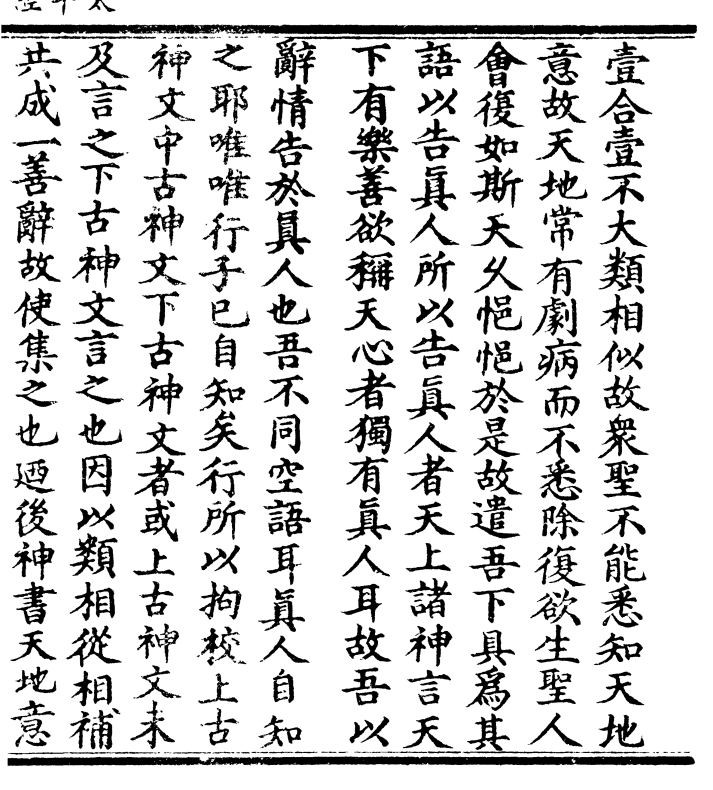 壹合壹不大類相似故衆聖不能悉知天地
意故天地常有劇病而不悉除復欲生聖人
會復如斯天久悒悒於是故遣吾下具爲其
語以告眞人所以告眞人者天上諸神言天
下有樂善欲稱天心者獨有眞人耳故吾以
辭情告於眞人也吾不同空語耳眞人自知
之耶唯唯行子已自知矣行所以拘校上古
神文中古神文下古神文者或上古神文未
及言之下古神文言之也因以類相從相補
共成一善辭故使集之也廼後神書天地意